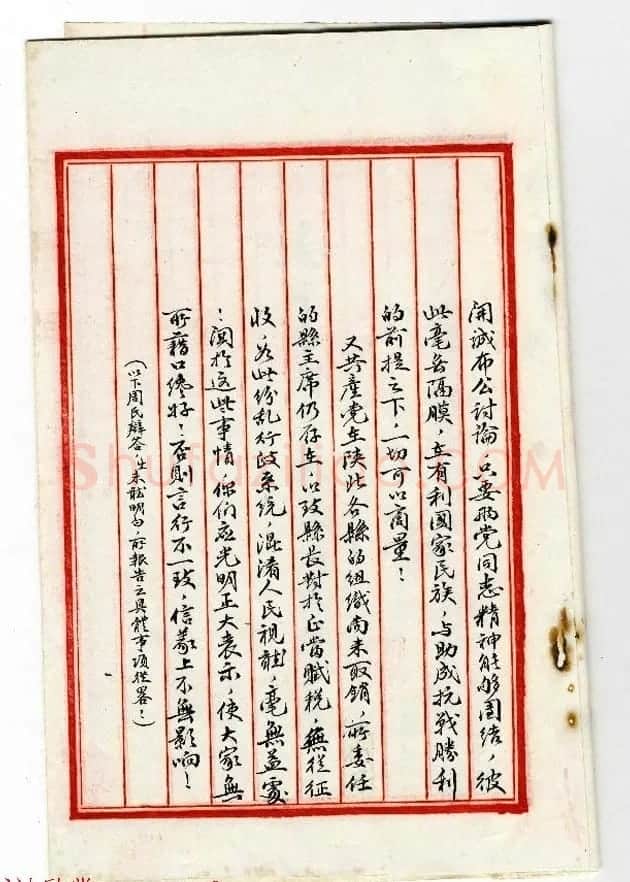 開誠布公討論只要兩党同志精神能够團结，彼
此毫無隔膜，在有利國家民族，与助成抗戰勝利
的前提之下，一切可以商量！
又共產党在陝北各縣的組織尚未取銷，所委任
的縣主席仍存在，以致縣長對於正當賦税，無從征
收，如此纷乱行政系统，混淆人民視聽，毫無益處
！関於这些事情，你们应光明正大表示，使大家無
所藉口才好！否則言行不一致，信義上不無影响！
（以下周民辯答，未能明白，所報告之具體事項從畧！）
ShufaZiliao.COM